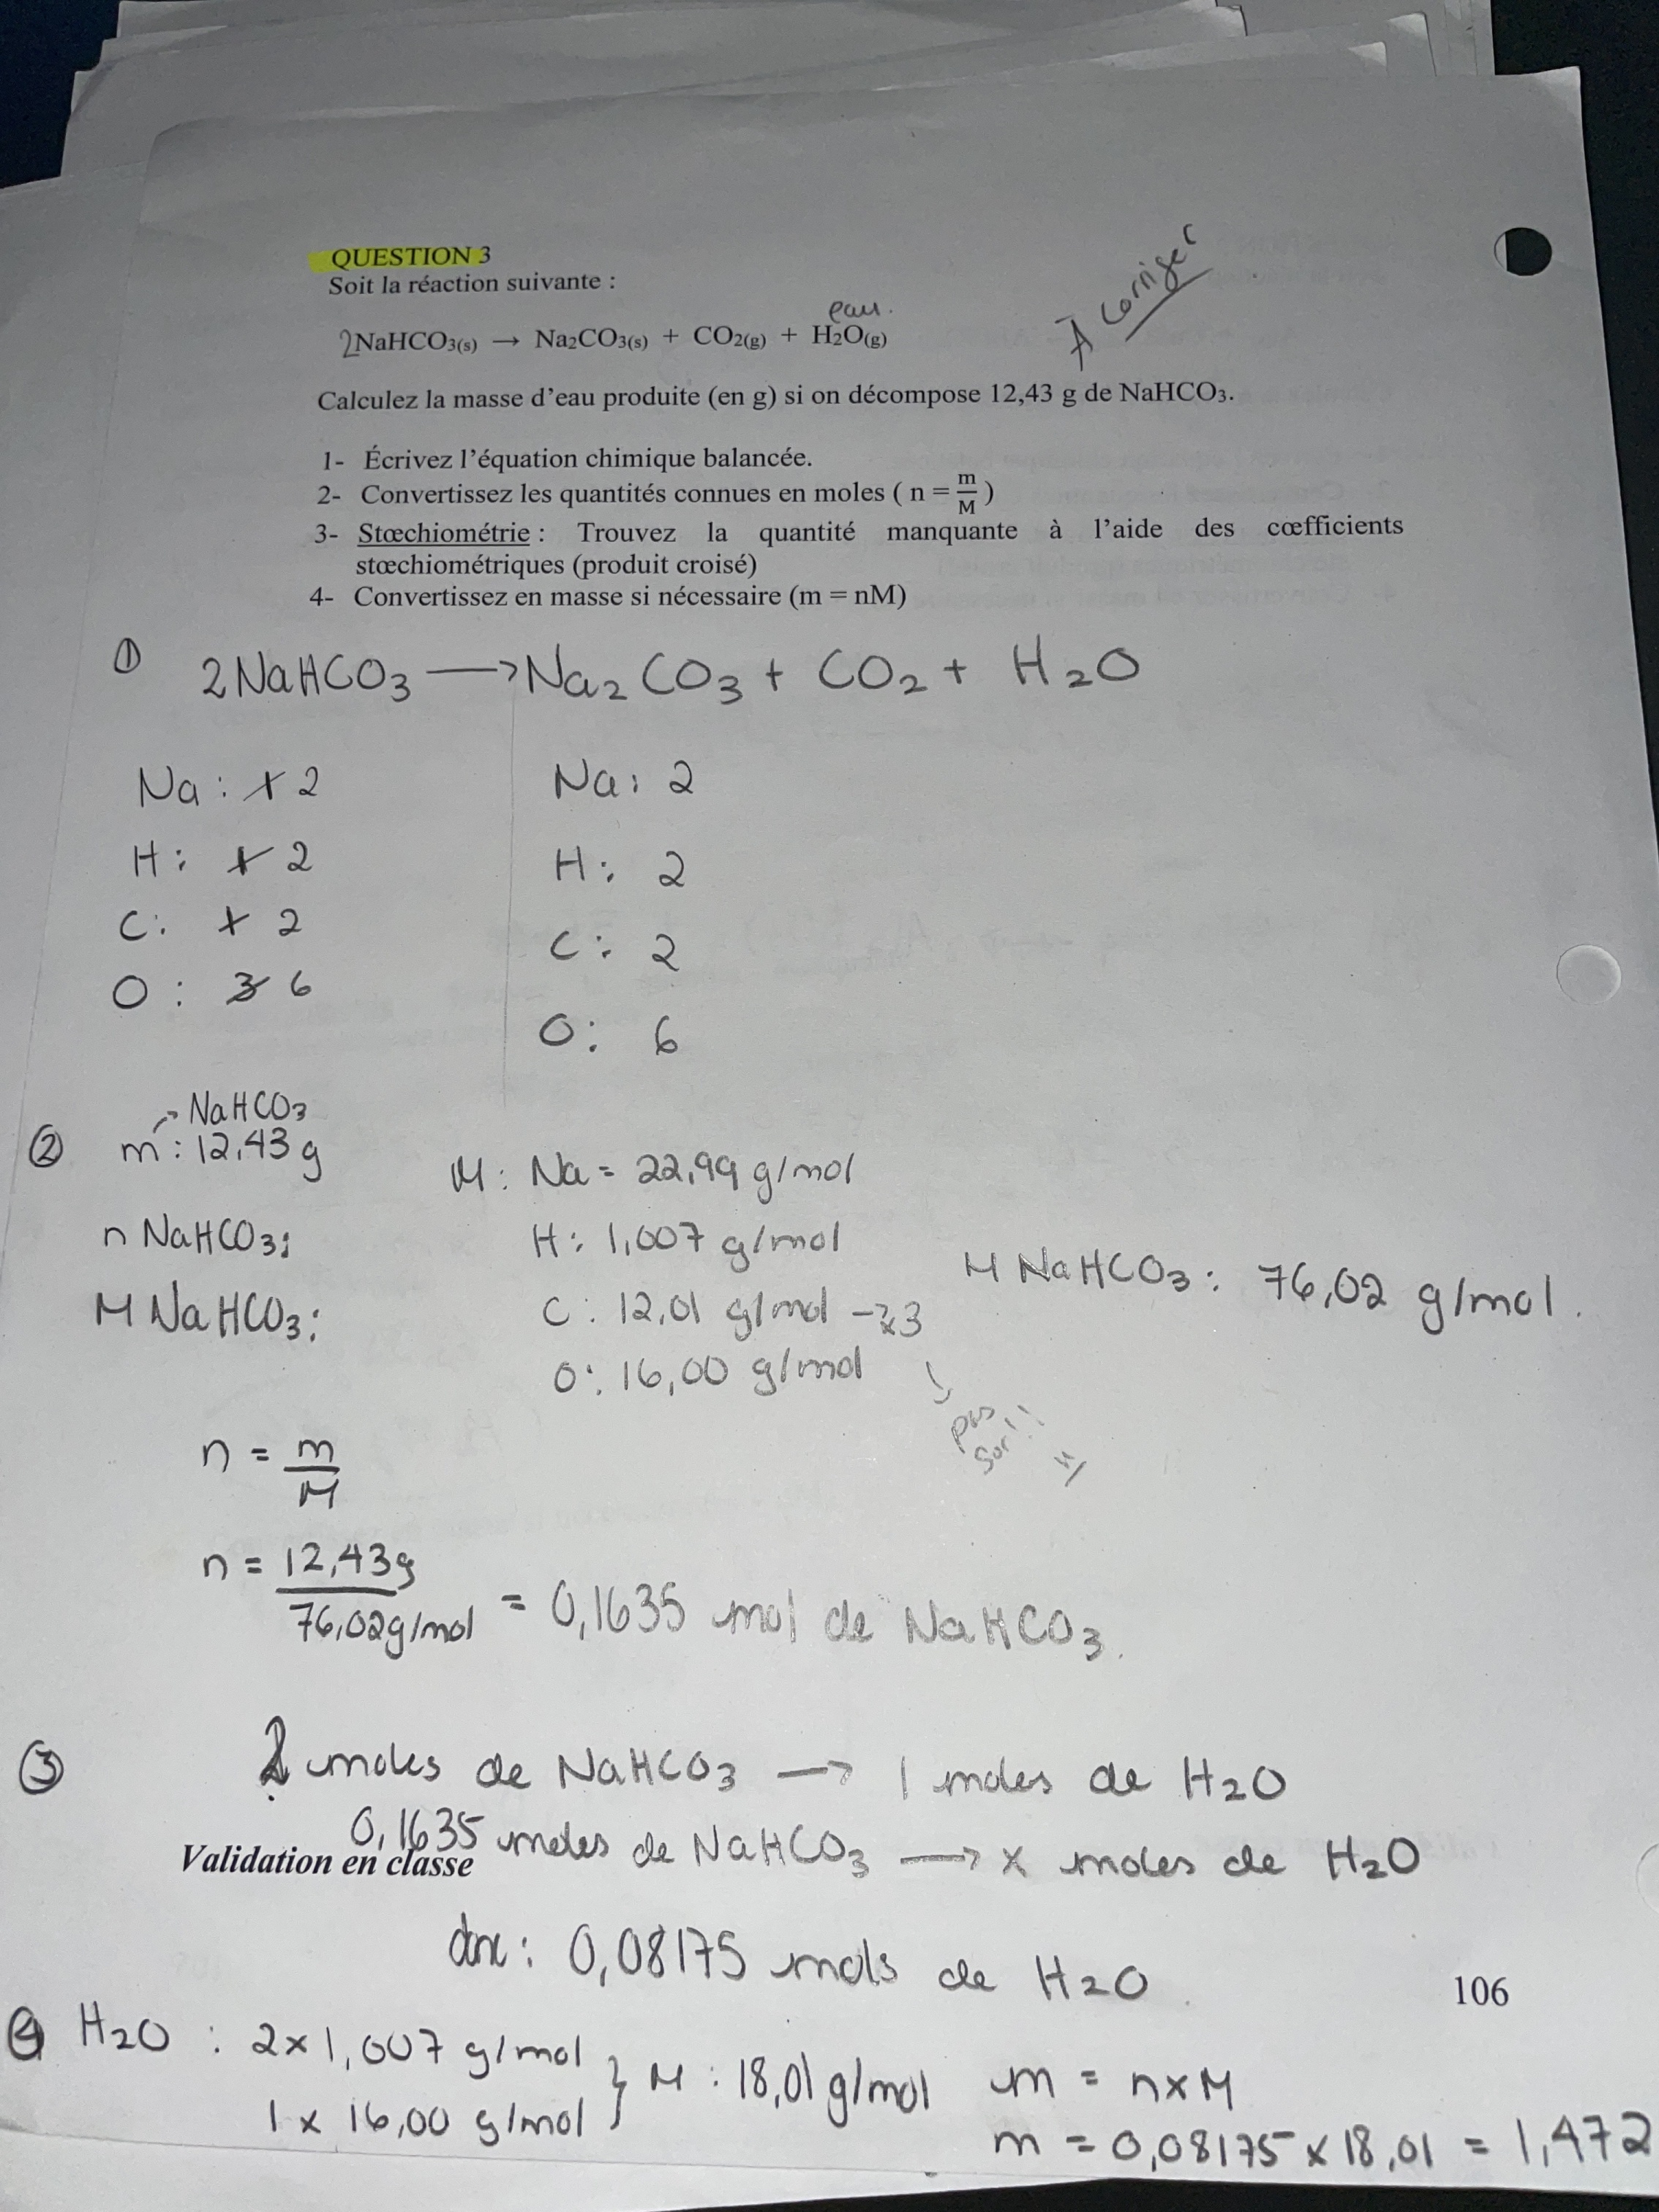 QUESTION 3
À corriger
Soit la réaction suivante :
eau.
2NaHCO3(s) → Na2CO3(s) + CO2(g) + H2O(g)
Calculez la masse d'eau produite (en g) si on décompose 12,43 g de NaHCO3.
1- Écrivez l'équation chimique balancée.
2- Convertissez les quantités connues en moles ( n = m/M )
3- Stœchiométrie : Trouvez la quantité manquante à l'aide des cœfficients
stœchiométriques (produit croisé)
4- Convertissez en masse si nécessaire (m = nM)
① 2NaHCO3 → Na2CO3 + CO2 + H2O
Na : 1 2 Na: 2
H : 1 2 H: 2
C: 1 2 C: 2
O : 3 6 O: 6
→ NaHCO3
② m : 12,43 g M: Na = 22,99 g/mol
n NaHCO3: H: 1,007 g/mol M NaHCO3: 76,02 g/mol.
M NaHCO3: C: 12,01 g/mol → x3
O: 16,00 g/mol
pas
sur!!
n = m/M
n = 12,43g / 76,02g/mol = 0,1635 mol de NaHCO3.
③ 2 moles de NaHCO3 → 1 moles de H2O
0,1635 moles de NaHCO3 → x moles de H2O
Validation en classe
donc: 0,08175 mols de H2O.
106
④ H2O : 2x1,007 g/mol } M : 18,01 g/mol m = n x M
1 x 16,00 g/mol m = 0,08175 x 18,01 = 1,472